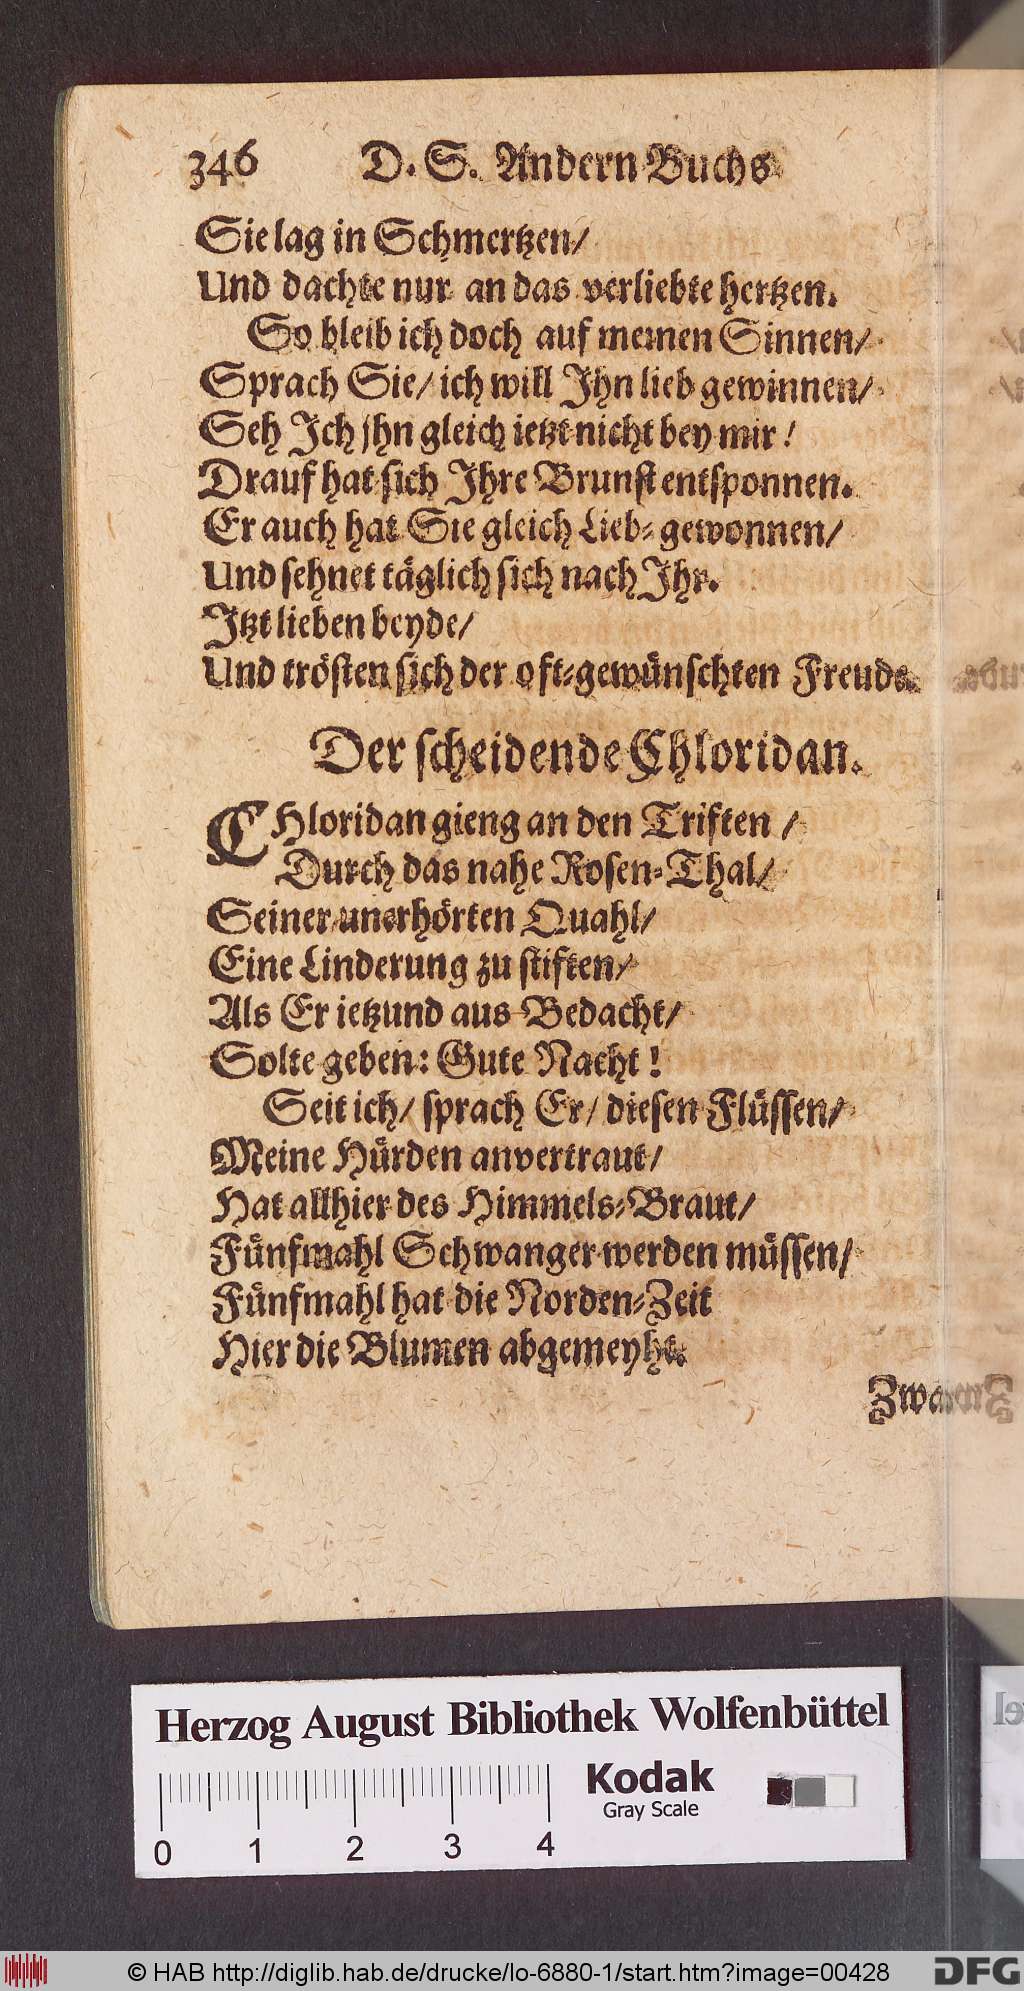 346 D. S. Andern Buchs
Sie lag in Schmertzen/
Und dachte nur an das verliebte hertzen.
So bleib ich doch auf meinen Sinnen/
Sprach Sie/ ich will Jhn lieb gewinnen/
Seh Jch jhn gleich ietzt nicht bey mir!
Drauf hat sich Jhre Brunst entsponnen.
Er auch hat Sie gleich Lieb-gewonnen/
Und sehnet täglich sich nach Jhr.
Jtzt lieben beyde/
Und trösten sich der oft-gewünschten Freude.
Der scheidende Chloridan.
CHloridan gieng an den Triften/
Durch das nahe Rosen-Thal/
Seiner unerhörten Quahl/
Eine Linderung zu stiften/
Als Er ietzund aus Bedacht/
Solte geben: Gute Nacht!
Seit ich/ sprach Er/ diesen Flüssen/
Meine Hürden anvertraut/
Hat allhier des Himmels-Braut/
Fünfmahl Schwanger werden müssen/
Fünfmahl hat die Norden-Zeit
Hier die Blumen abgemeyht.
Herzog August Bibliothek Wolfenbüttel
Kodak
Gray Scale
0 1 2 3 4
© HAB http://diglib.hab.de/drucke/lo-6880-1/start.htm?image=00428
DFG